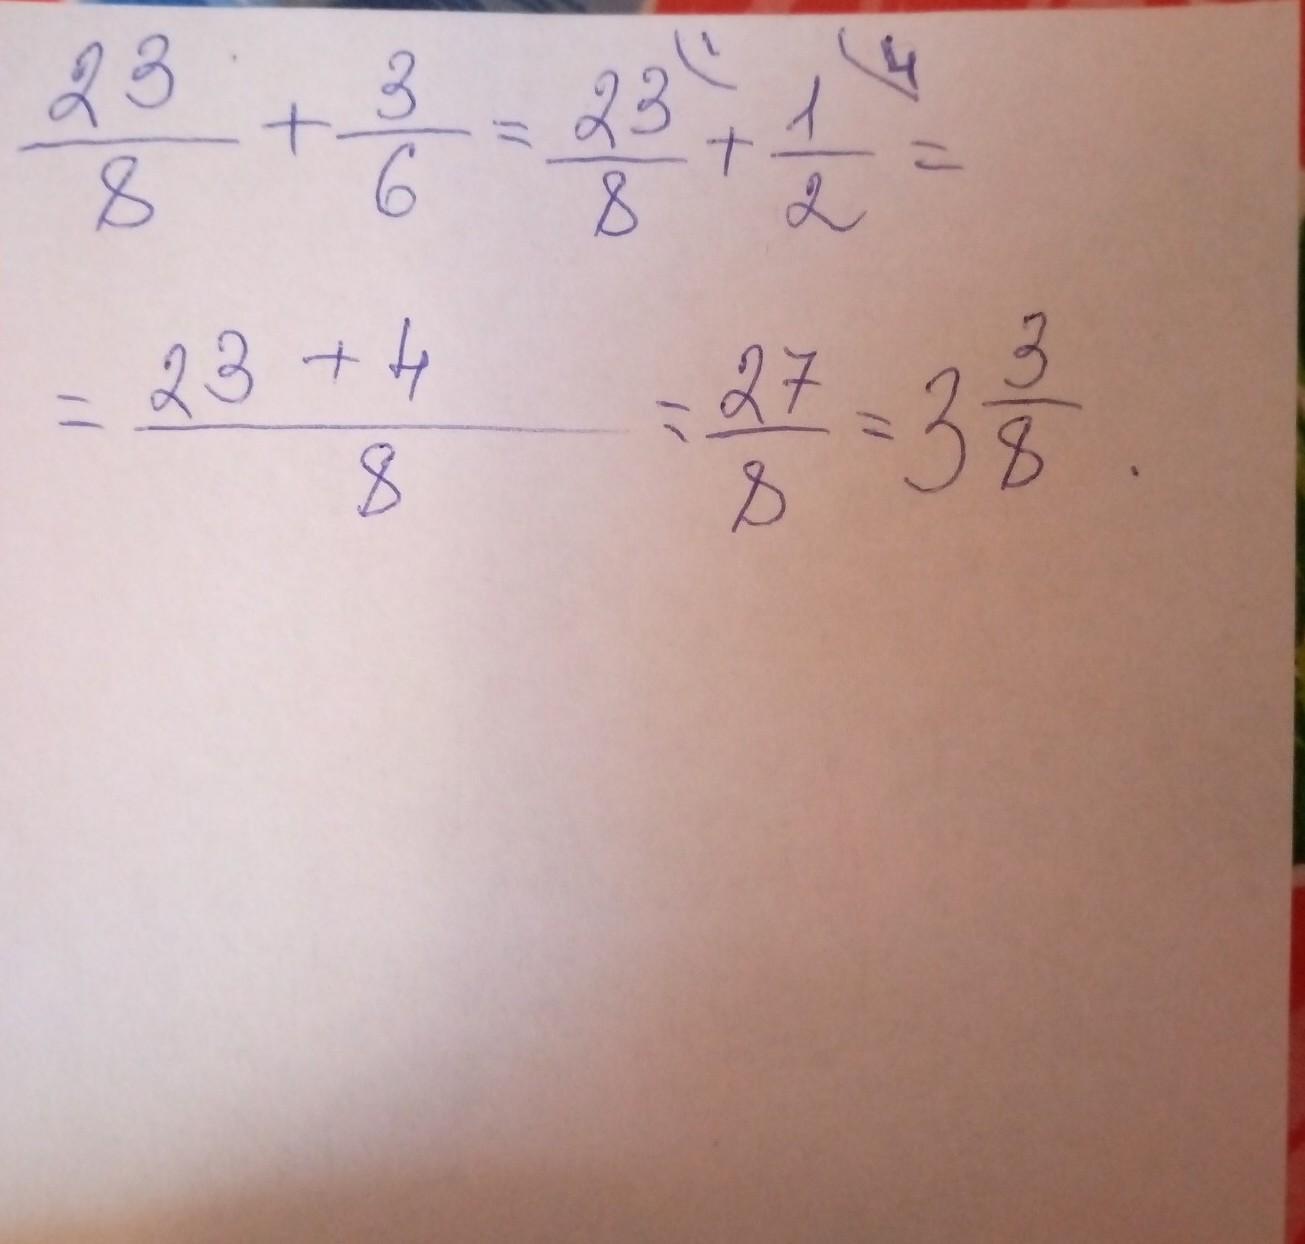 23/8 + 3/6 = 23/8 (1 + 1/2 (4 =
= 23 + 4/8 = 27/8 = 3 3/8 .